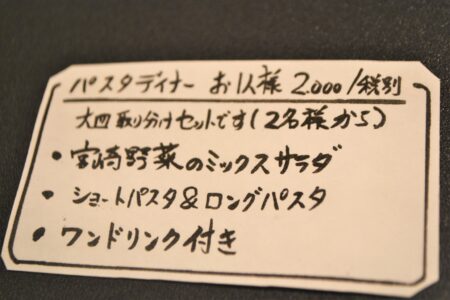 パスタディナー お1人様 2.000/税別
大皿取り分けセットです(2名様から)
• 宮崎野菜のミックスサラダ
• ショートパスタ&ロングパスタ
• ワンドリンク付き